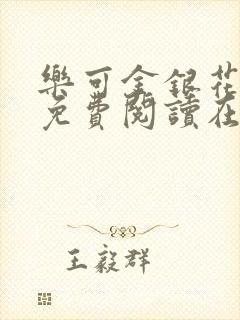 樂可金銀花
免費閱讀在
王毅群